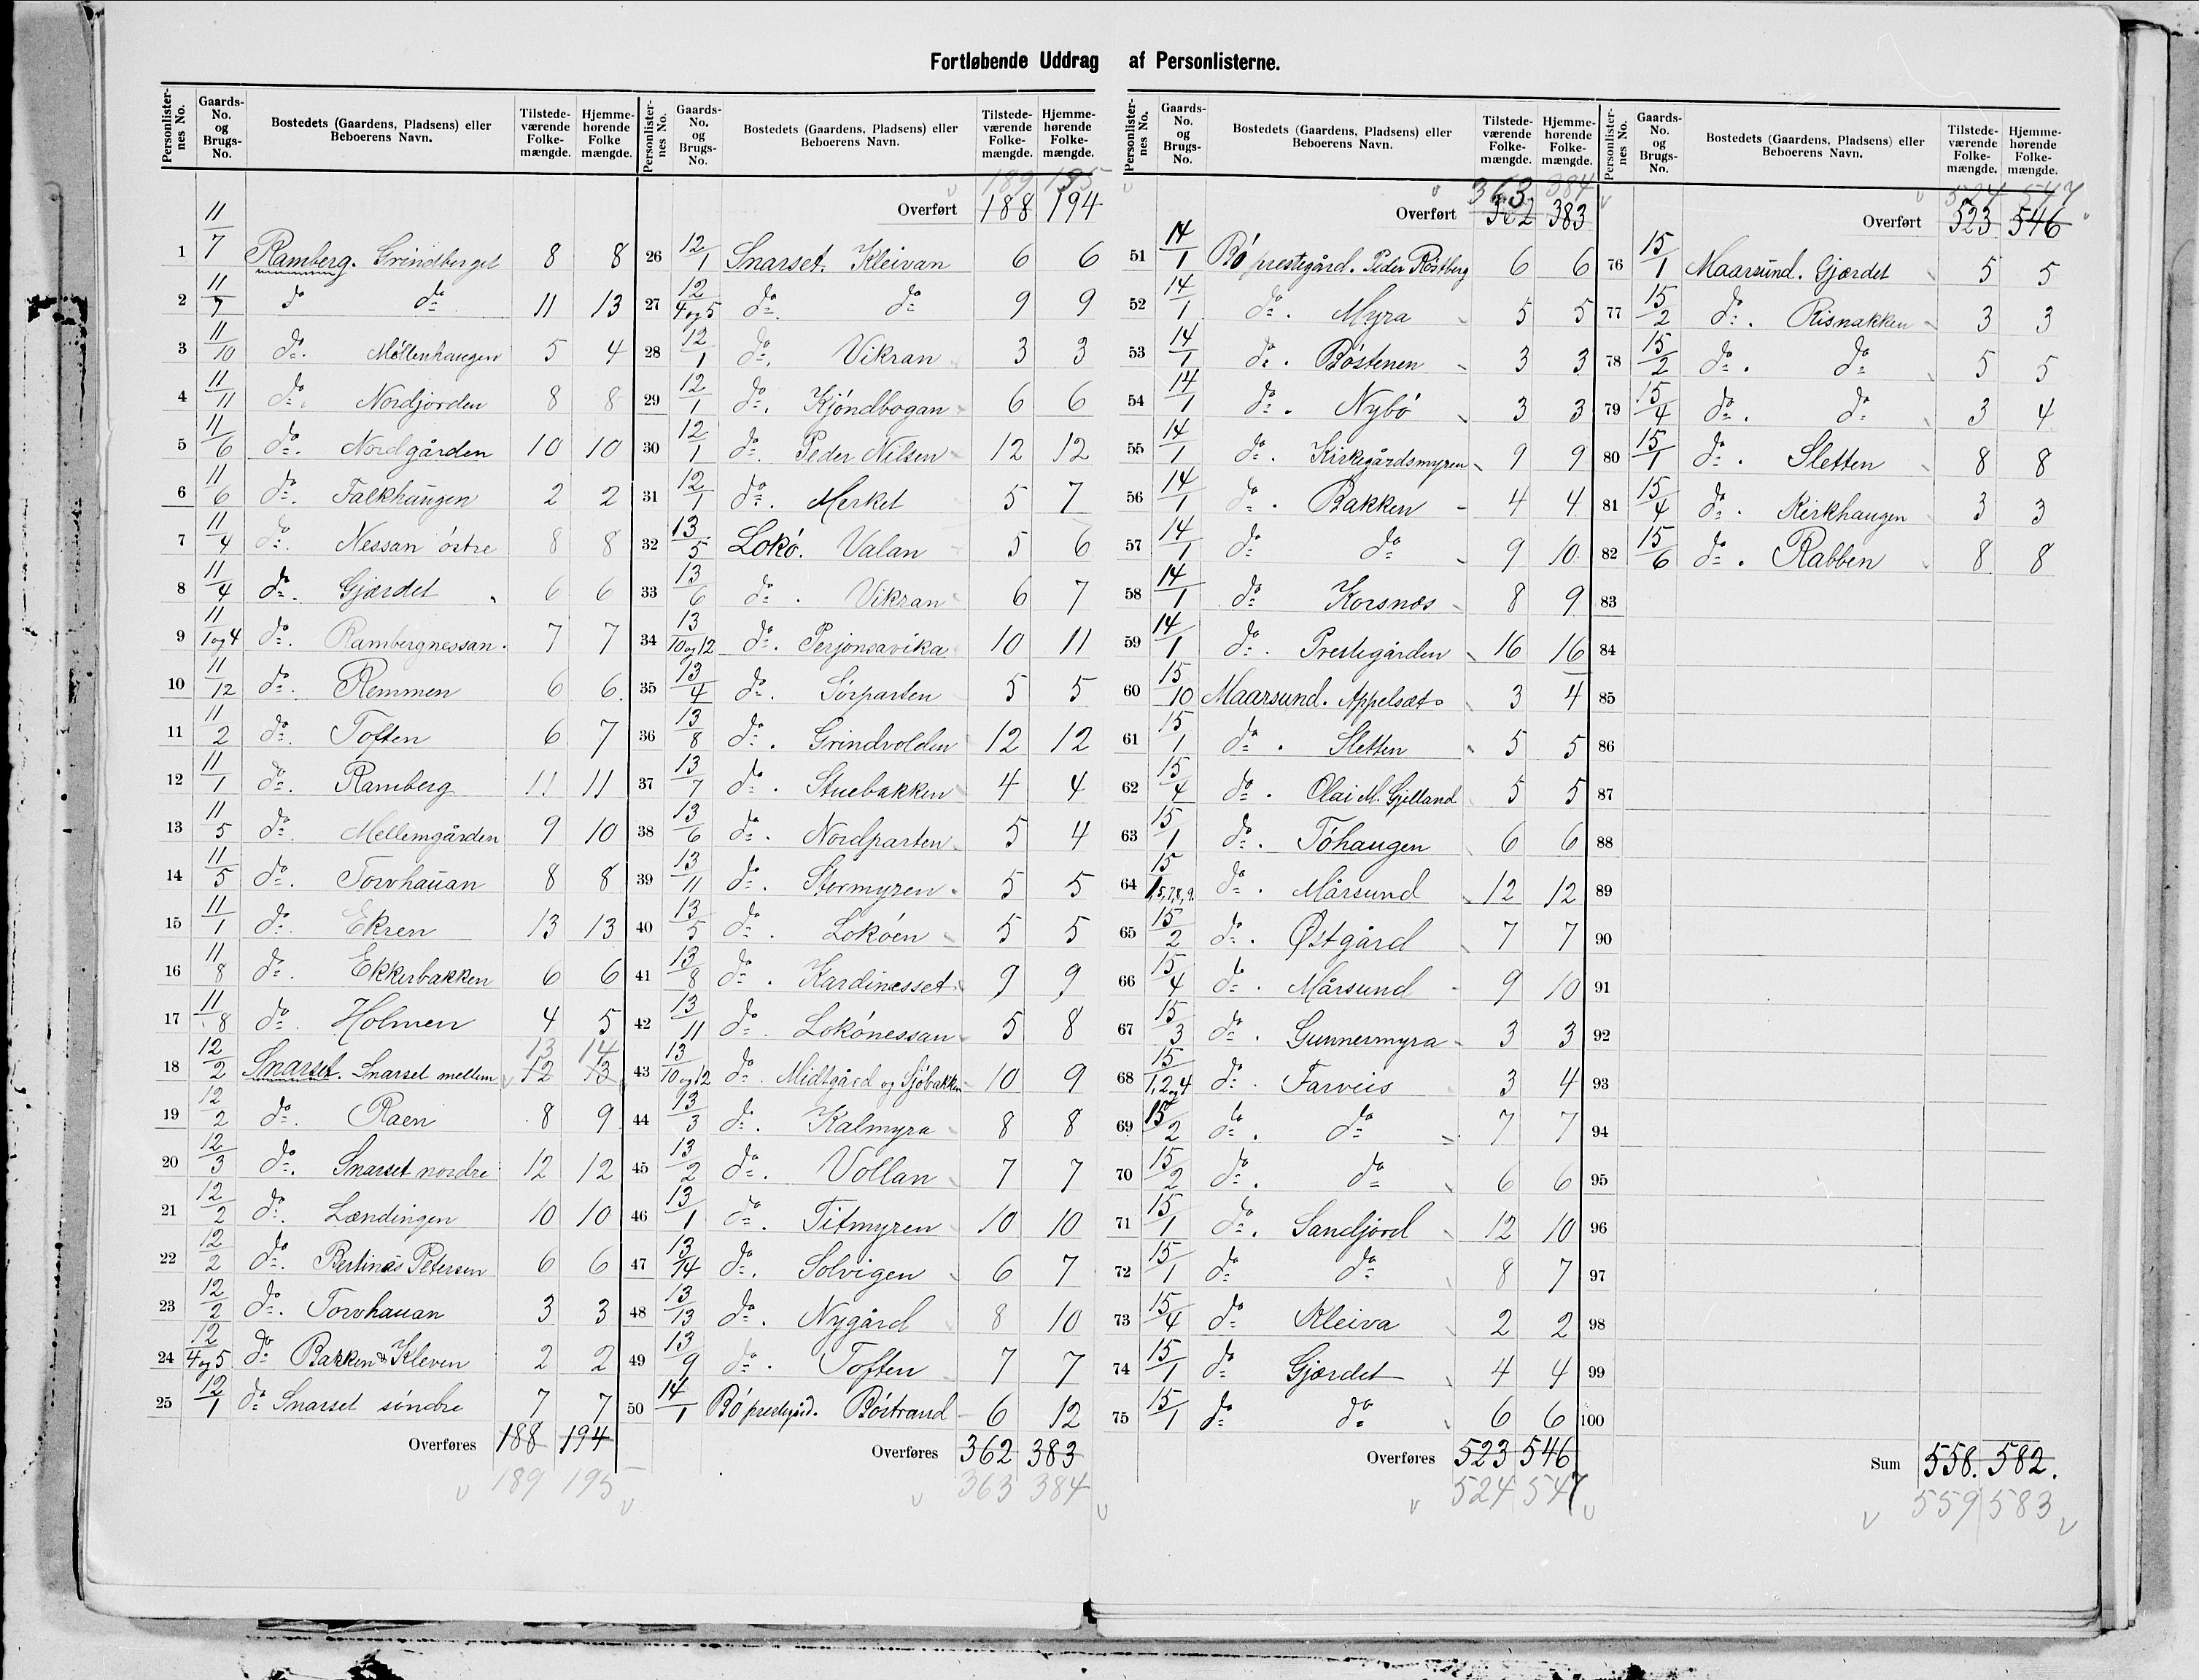 Fortløbende Uddrag af Personlisterne.
Personlister-nes No. Gaards-No. og Brugs-No. Bostedets (Gaardens, Pladsens) eller Beboerens Navn. Tilstede-værende Folke-mængde. Hjemme-hørende Folke mængde.
1 11/7 Ramberg. Grindberget 8 8
2 11/7 do do 11 13
3 11/10 do. Möllenhaugen 5 4
4 11/11 do. Nordjorden 8 8
5 11/6 do. Nordgården 10 10
6 11/6 do. Falkhaugen 2 2
7 11/4 do. Nessan östre 8 8
8 11/4 do. Gjærdet 6 6
9 11/1og4 do. Rambergnessan. 7 7
10 11/12 do. Remmen 6 6
11 11/2 do. Toften 6 7
12 11/1 do. Ramberg 11 11
13 11/5 do. Mellemgården 9 10
14 11/5 do. Torvhauan 8 8
15 11/1 do. Ekren 13 13
16 11/8 do. Ekkerbakken 6 6
17 11/8 do. Holmen 4 5
13 14
18 12/2 Snarset. Snarset mellem 12 13
19 12/2 do. Raen 8 9
20 12/3 do. Snarset nordre 12 12
21 12/2 do. Lændingen 10 10
22 12/2 do. Bertinas Petersen 6 6
23 12/2 do. Torvhauan 3 3
24 12/4og5 do Bakken & Kleven 2 2
25 12/1 do Snarset söndre 7 7
Overføres 188 194
189 195
Personlister-nes No. Gaards-No. og Brugs-No. Bostedets (Gaardens, Pladsens) eller Beboerens Navn. Tilstede-værende Folke-mængde. Hjemme-hørende Folke-mængde.
189 195
Overført 188 194
26 12/1 Snarset. Kleivan 6 6
27 12/4og5 do. do 9 9
28 12/1 do. Vikran 3 3
29 12/1 do. Kjöndbogan 6 6
30 12/1 do. Peder Nilsen 12 12
31 12/1 do. Merket 5 7
32 13/5 Lokö. Valan 5 6
33 13/6 do. Vikran 6 7
34 13/10og12 do. Perjonsavika 10 11
35 13/4 do. Sörparten 5 5
36 13/8 do. Grindvolden 12 12
37 13/7 do. Stuebakken 4 4
38 13/6 do. Nordparten 5 4
39 13/11 do. Stormyren. 5 5
40 13/5 do. Loköen 5 5
41 13/8 do. Kardinesset 9 9
42 13/11 do. Lokönessan 5 8
43 13/10og12 do. Midtgård og Sjöbakken 10 9
44 13/3 do. Kalmyra 8 8
45 13/2 do. Vollan 7 7
46 13/1 do. Titmyren 10 10
47 13/14 do. Solvigen 6 7
48 13/13 do. Nygård 8 10
49 13/9 do. Toften 7 7
50 14/1 Bö prestegård. Böstrand 6 12
Overføres 362 383
363 384
Personlister-nes No. Gaards-No. og Brugs-No. Bostedets (Gaardens, Pladsens) eller Beboerens Navn. Tilstede-værende Folke-mængde. Hjemme-hørende Folke-mængde.
363 384
Overført 362 383
51 14/1 Bö prestegård. Peder Röstberg 6 6
52 14/1 do. Myra 5 5
53 14/1 do. Böstenen 3 3
54 14/1 do. Nybö 3 3
55 14/1 do. Kirkegårdsmyren 9 9
56 14/1 do. Bakken 4 4
57 14/1 do do 9 10
58 14/1 do Korsnes 8 9
59 14/1 do. Prestegården 16 16
60 15/10 Maarsund. Appelsæt 3 4
61 15/1 do. Sletten 5 5
62 15/4 do. Olai M. Gjelland 5 5
63 15/1 do. Töhaugen 6 6
64 15/1,5,7,8,9. do. Mårsund 12 12
65 15/2 do. Østgård 7 7
66 15/4 do. Mårsund 9 10
67 15/3 do. Gunnermyra 3 3
68 15/1,2og4 do. Farveis 3 4
69 15/2 do. do 7 7
70 15/2 do. do 6 6
71 15/1 do. Sandjord 12 10
72 15/1 do do 8 7
73 15/4 do Kleiva 2 2
74 15/1 do Gjærdet 4 4
75 15/1 do do 6 6
Overføres 523 546
524 547
Personlister-nes No. Gaards-No. og Brugs-No. Bostedets (Gaardens, Pladsens) eller Beboerens Navn. Tilstede-værende Folke-mængde. Hjemme-hørende Folke-mængde.
524 547
Overført 523 546
76 15/1 Maarsund. Gjærdet 5 5
77 15/2 do. Risnakken 3 3
78 15/2 do. do 5 5
79 15/4 do. do 3 4
80 15/1 do. Sletten 8 8
81 15/4 do. Kirkhaugen 3 3
82 15/6 do. Rabben 8 8
83
84
85
86
87
88
89
90
91
92
93
94
95
96
97
98
99
100
Sum 558. 582.
559 583